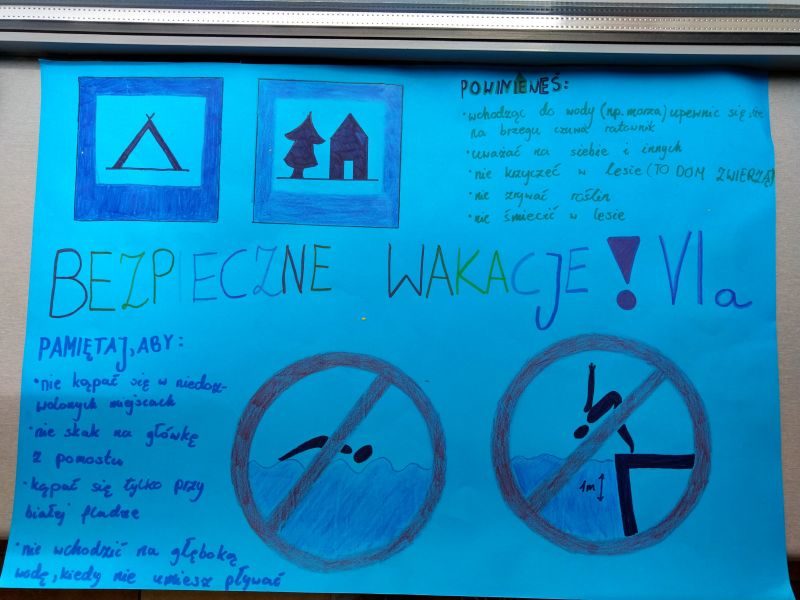 POWINIENEŚ:
• wchodząc do wody (np. morza) upewnić się, że
na brzegu czuwa ratownik
• uważać na siebie i innych
• nie krzyczeć w lesie (TO DOM ZWIERZĄT
• nie zrywać roślin
• nie śmiecić w lesie
BEZPIECZNE WAKACJE! VIa
PAMIĘTAJ, ABY:
• nie kąpać się w niedoz-
wolonych miejscach
• nie skak na główkę
z pomostu
• kąpać się tylko przy
białej fladze
• nie wchodzić na głęboką
wodę, kiedy nie umiesz pływać
1m